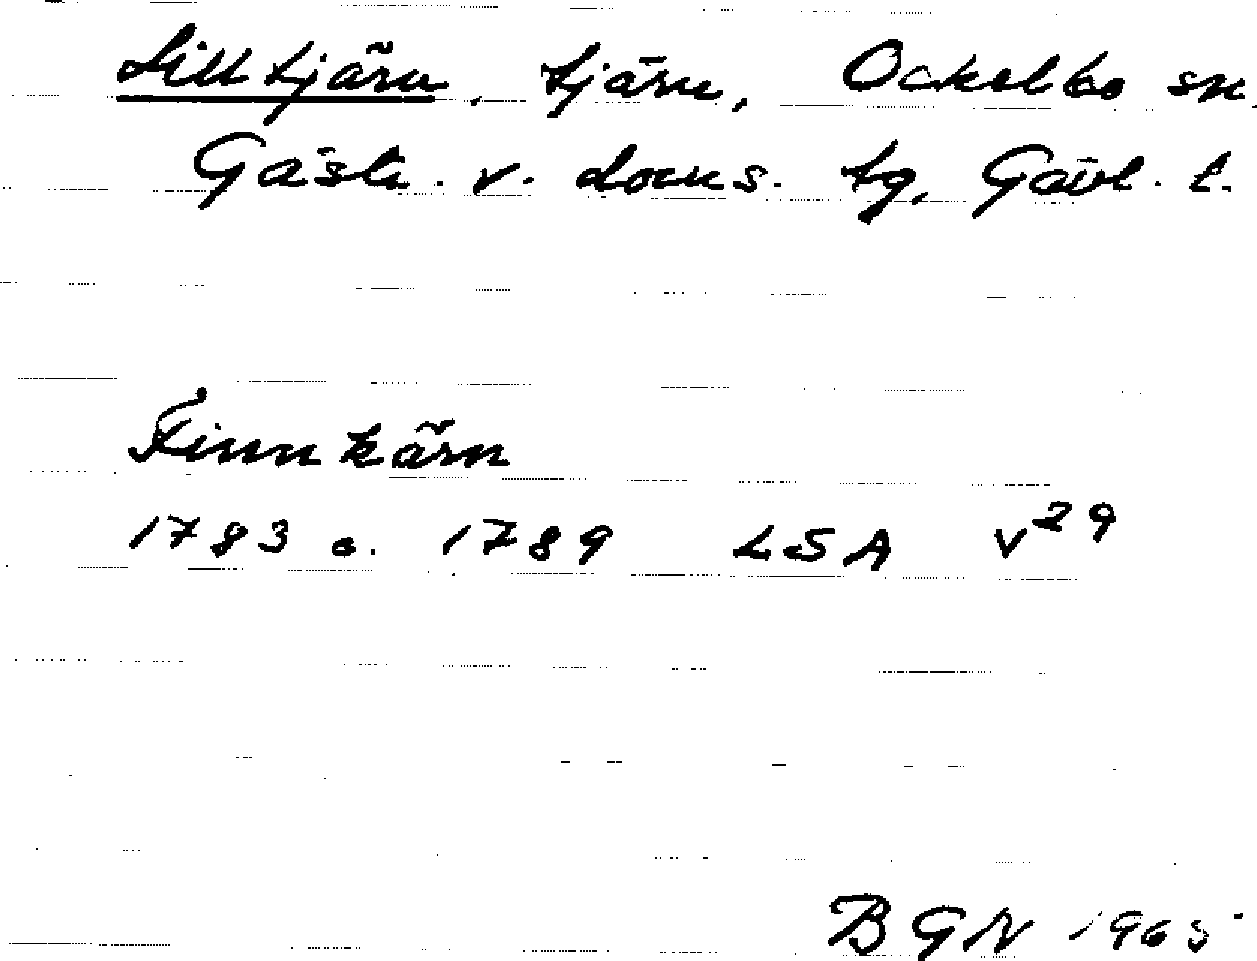 Lilltjärn, tjärn, Ockelbo sn.
Gästr. v. doms. tg, Gävl. l.
Finnkärn
1783 o. 1789 LSA V29
BGN 1965